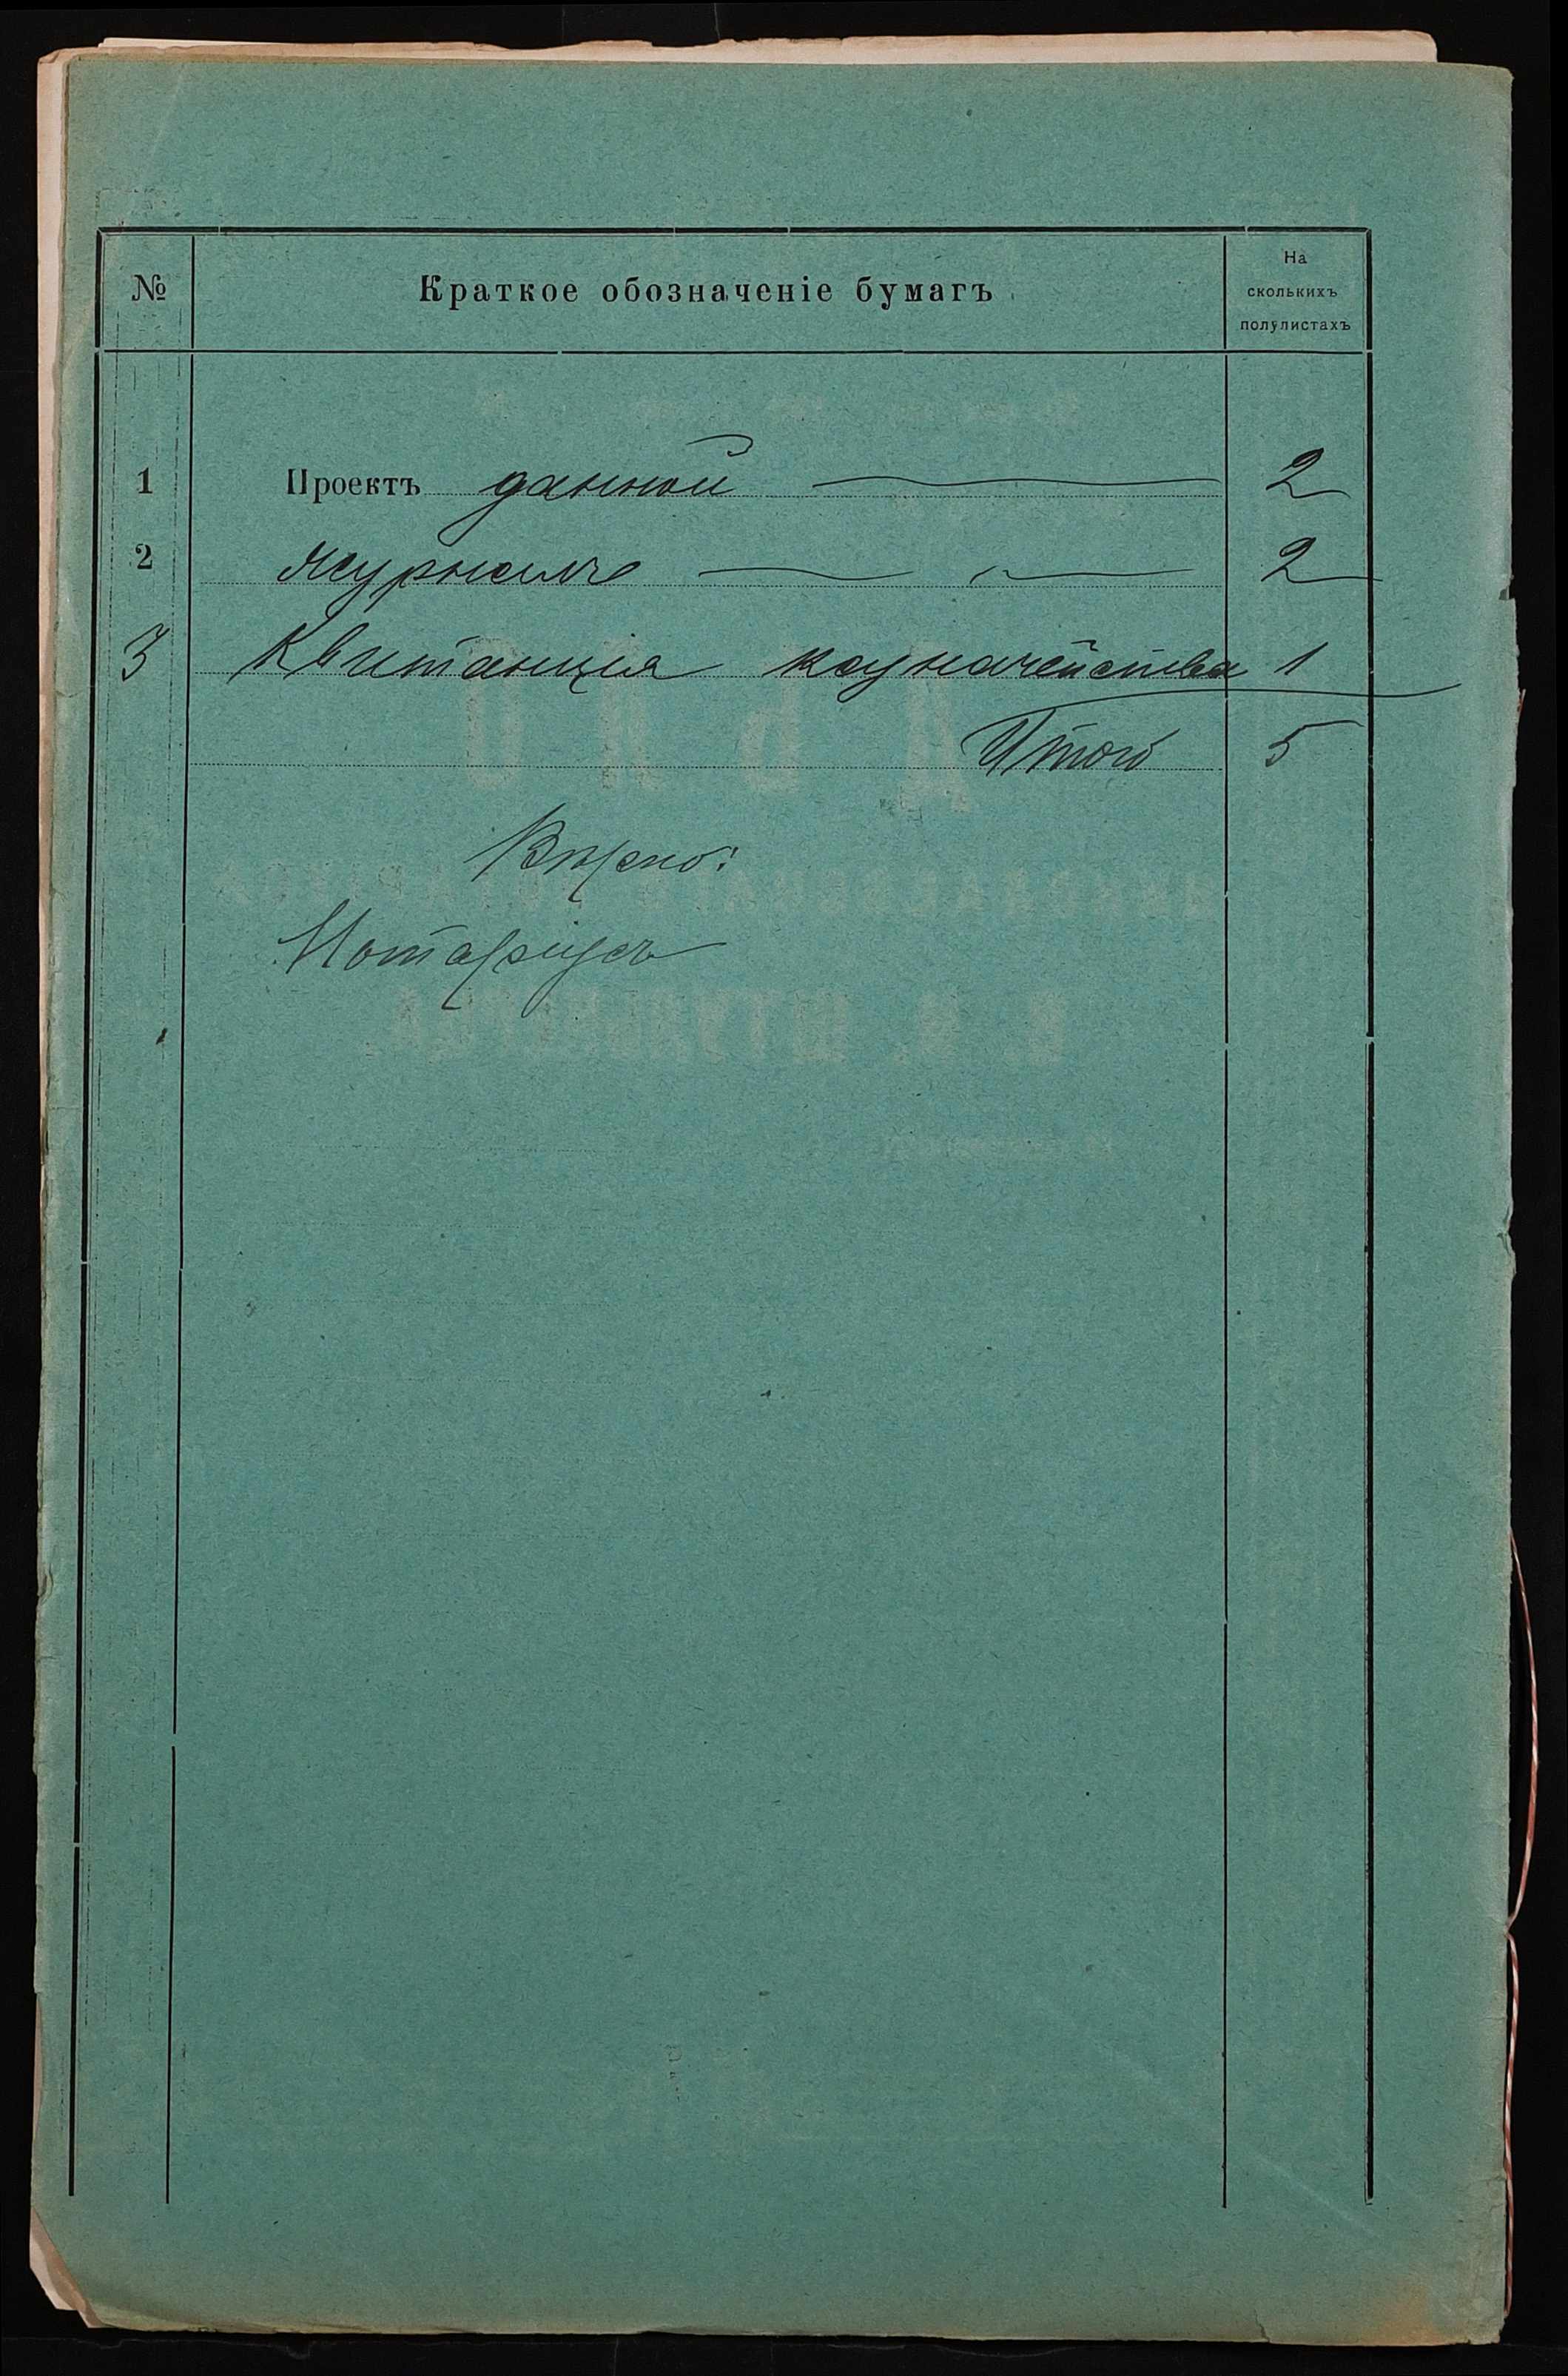 № Краткое обозначеніе бумагъ На
сколькихъ
полулистахъ
1 Проектъ данной 2
2 Журналъ 2
3 Квитанція казначейства 1
Итого 5
Вѣрно:
Нотаріусъ